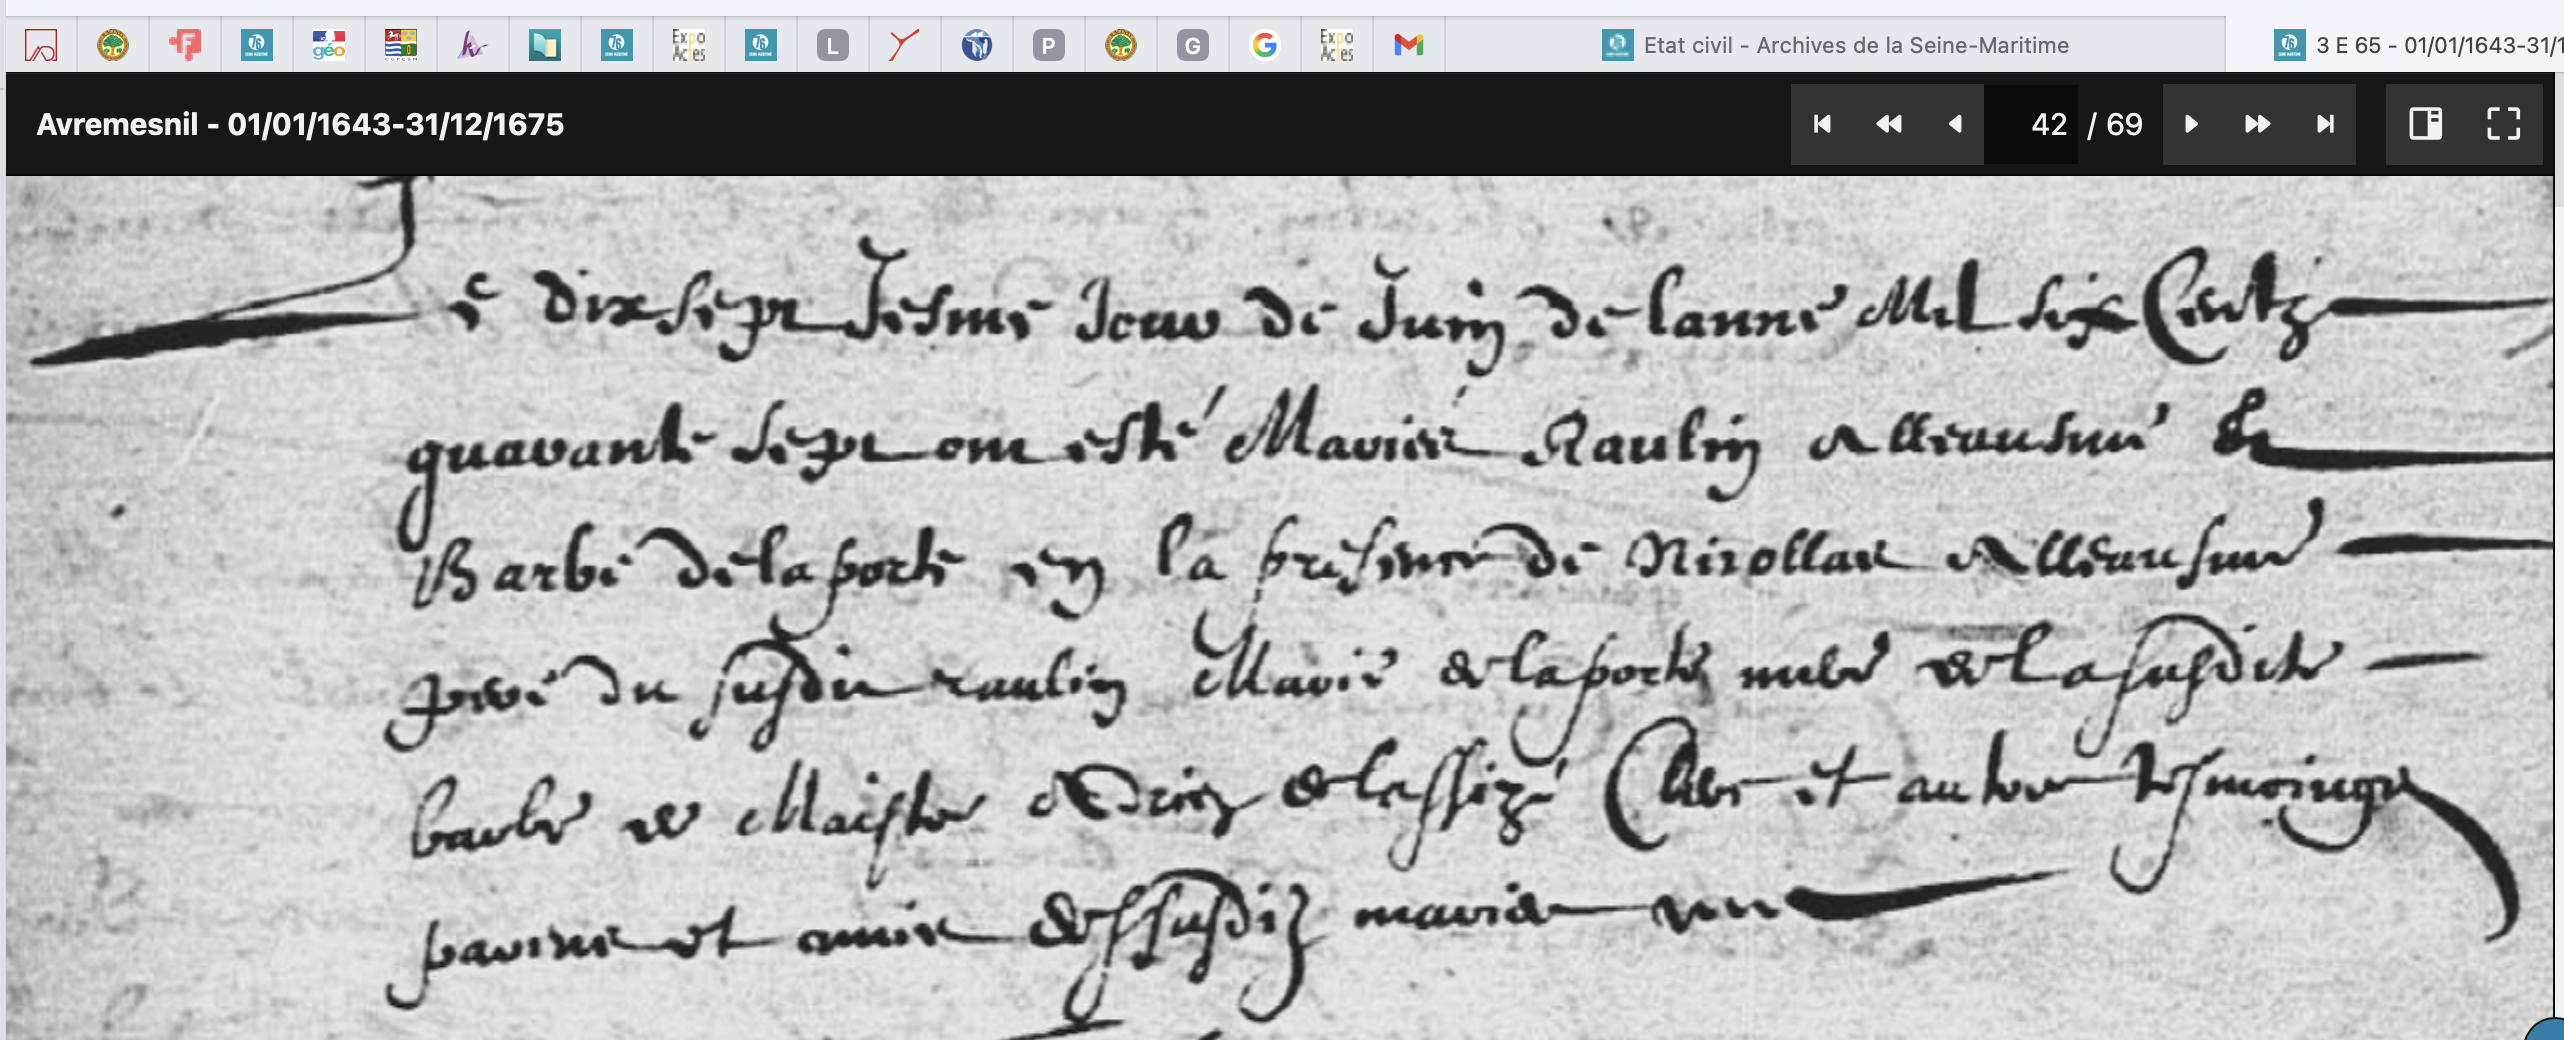 Etat civil - Archives de la Seine-Maritime
3 E 65 - 01/01/1643-31/1
Avremesnil - 01/01/1643-31/12/1675
42 / 69
Le dix sept Iesme Jour de Juin de lanne Mil six Centz
quarante sept ont esté Mariés Raulin Alleaume &
Barbe delaporte en la presence de Nicollas Alleaume
pere du susdit raulin Marie delaporte mere de la susdite
barbe et Maistre Adrien Clerc et autres tesmoings
parens et amis des susditz mariés